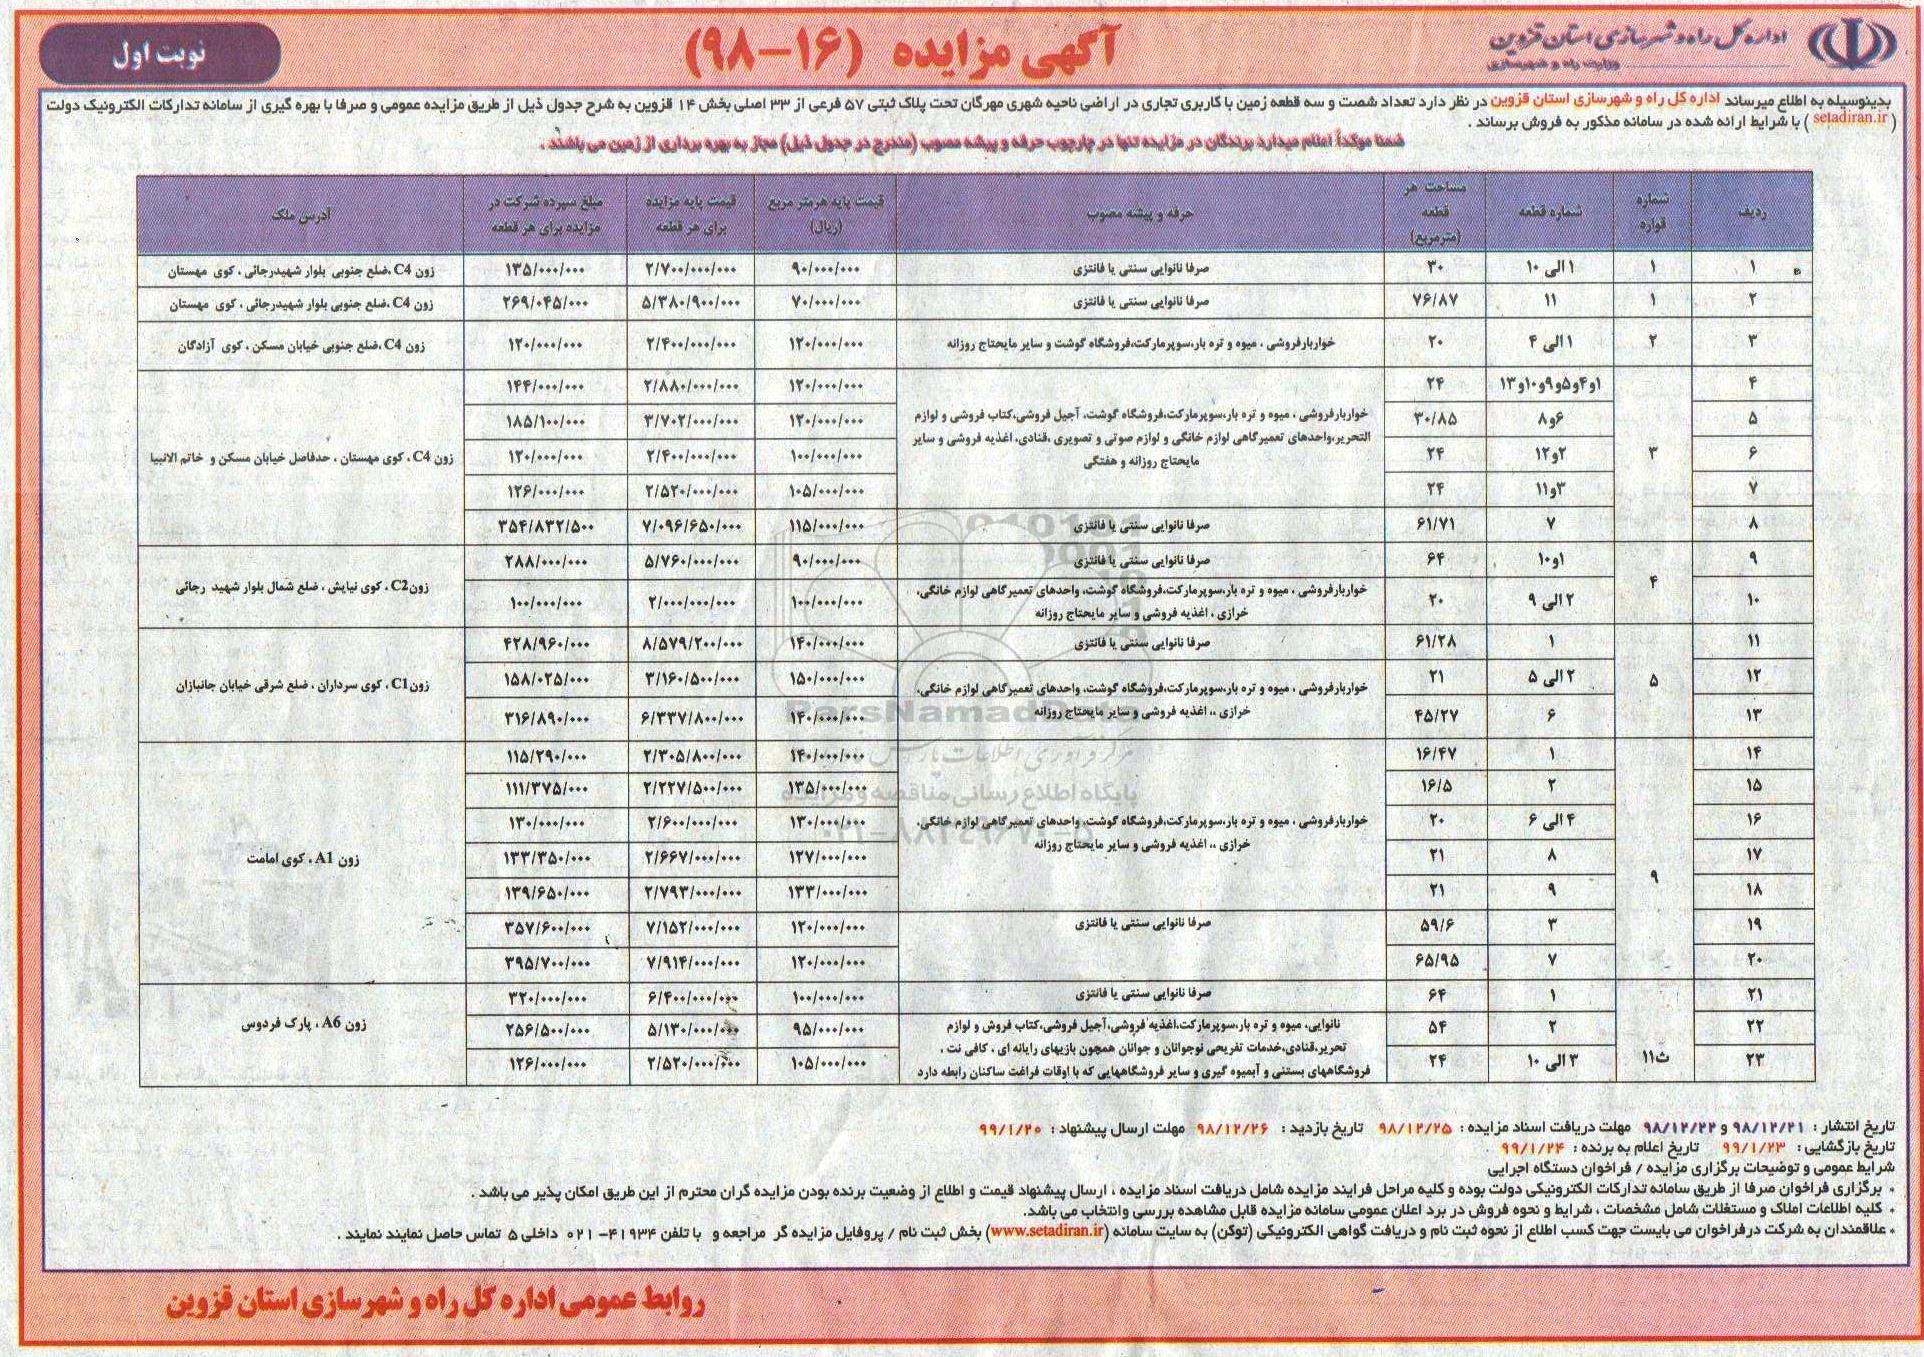 اداره کل راه و شهرسازی استان قزوین
وزارت راه و شهرسازی
آگهی مزایده (۱۶-۹۸)
نوبت اول
بدینوسیله به اطلاع میرساند اداره کل راه و شهرسازی استان قزوین در نظر دارد تعداد شصت و سه قطعه زمین با کاربری تجاری در اراضی ناحیه شهری مهرگان تحت پلاک ثبتی ۵۷ فرعی از ۳۳ اصلی بخش ۱۴ قزوین به شرح جدول ذیل از طریق مزایده عمومی و صرفا با بهره گیری از سامانه تدارکات الکترونیک دولت
( setadiran.ir ) با شرایط ارائه شده در سامانه مذکور به فروش برساند .
ضمنا موکداً اعلام میدارد برندگان در مزایده تنها در چارچوب حرفه و پیشه مصوب (مندرج در جدول ذیل) مجاز به بهره برداری از زمین می باشند .
ردیف | شماره قواره | شماره قطعه | مساحت هر قطعه (مترمربع) | حرفه و پیشه مصوب | قیمت پایه هرمتر مربع (ریال) | قیمت پایه مزایده برای هر قطعه | مبلغ سپرده شرکت در مزایده برای هر قطعه | آدرس ملک
۱ | ۱ | ۱ الی ۱۰ | ۳۰ | صرفا نانوایی سنتی یا فانتزی | ۹۰/۰۰۰/۰۰۰ | ۲/۷۰۰/۰۰۰/۰۰۰ | ۱۳۵/۰۰۰/۰۰۰ | زون C4 ،ضلع جنوبی بلوار شهیدرجائی ، کوی مهستان
۲ | ۱ | ۱۱ | ۷۶/۸۷ | صرفا نانوایی سنتی یا فانتزی | ۷۰/۰۰۰/۰۰۰ | ۵/۳۸۰/۹۰۰/۰۰۰ | ۲۶۹/۰۴۵/۰۰۰ | زون C4 ،ضلع جنوبی بلوار شهیدرجائی ، کوی مهستان
۳ | ۲ | ۱ الی ۴ | ۲۰ | خواربارفروشی ، میوه و تره بار،سوپرمارکت،فروشگاه گوشت و سایر مایحتاج روزانه | ۱۲۰/۰۰۰/۰۰۰ | ۲/۴۰۰/۰۰۰/۰۰۰ | ۱۲۰/۰۰۰/۰۰۰ | زون C4 ،ضلع جنوبی خیابان مسکن ، کوی آزادگان
۴ | ۳ | ۱و۴و۵و۹و۱۰و۱۳ | ۲۴ | خواربارفروشی ، میوه و تره بار،سوپرمارکت،فروشگاه گوشت، آجیل فروشی،کتاب فروشی و لوازم التحریر،واحدهای تعمیرگاهی لوازم خانگی و لوازم صوتی و تصویری ،قنادی، اغذیه فروشی و سایر مایحتاج روزانه و هفتگی | ۱۲۰/۰۰۰/۰۰۰ | ۲/۸۸۰/۰۰۰/۰۰۰ | ۱۴۴/۰۰۰/۰۰۰ | زون C4 ، کوی مهستان ، حدفاصل خیابان مسکن و خاتم الانبیا
۵ | ۶و۸ | ۳۰/۸۵ | ۱۲۰/۰۰۰/۰۰۰ | ۳/۷۰۲/۰۰۰/۰۰۰ | ۱۸۵/۱۰۰/۰۰۰
۶ | ۲و۱۲ | ۲۴ | ۱۰۰/۰۰۰/۰۰۰ | ۲/۴۰۰/۰۰۰/۰۰۰ | ۱۲۰/۰۰۰/۰۰۰
۷ | ۳و۱۱ | ۲۴ | ۱۰۵/۰۰۰/۰۰۰ | ۲/۵۲۰/۰۰۰/۰۰۰ | ۱۲۶/۰۰۰/۰۰۰
۸ | ۷ | ۶۱/۷۱ | صرفا نانوایی سنتی یا فانتزی | ۱۱۵/۰۰۰/۰۰۰ | ۷/۰۹۶/۶۵۰/۰۰۰ | ۳۵۴/۸۳۲/۵۰۰
۹ | ۴ | ۱و۱۰ | ۶۴ | صرفا نانوایی سنتی یا فانتزی | ۹۰/۰۰۰/۰۰۰ | ۵/۷۶۰/۰۰۰/۰۰۰ | ۲۸۸/۰۰۰/۰۰۰ | زونC2 ، کوی نیایش ، ضلع شمال بلوار شهید رجائی
۱۰ | ۲ الی ۹ | ۲۰ | خواربارفروشی ، میوه و تره بار،سوپرمارکت،فروشگاه گوشت، واحدهای تعمیرگاهی لوازم خانگی، خرازی ، اغذیه فروشی و سایر مایحتاج روزانه | ۱۰۰/۰۰۰/۰۰۰ | ۲/۰۰۰/۰۰۰/۰۰۰ | ۱۰۰/۰۰۰/۰۰۰
۱۱ | ۵ | ۱ | ۶۱/۲۸ | صرفا نانوایی سنتی یا فانتزی | ۱۴۰/۰۰۰/۰۰۰ | ۸/۵۷۹/۲۰۰/۰۰۰ | ۴۲۸/۹۶۰/۰۰۰ | زونC1 ، کوی سرداران ، ضلع شرقی خیابان جانبازان
۱۲ | ۲ الی ۵ | ۲۱ | خواربارفروشی ، میوه و تره بار،سوپرمارکت،فروشگاه گوشت، واحدهای تعمیرگاهی لوازم خانگی، خرازی ،، اغذیه فروشی و سایر مایحتاج روزانه | ۱۵۰/۰۰۰/۰۰۰ | ۳/۱۶۰/۵۰۰/۰۰۰ | ۱۵۸/۰۲۵/۰۰۰
۱۳ | ۶ | ۴۵/۲۷ | ۱۴۰/۰۰۰/۰۰۰ | ۶/۳۳۷/۸۰۰/۰۰۰ | ۳۱۶/۸۹۰/۰۰۰
۱۴ | ۹ | ۱ | ۱۶/۴۷ | خواربارفروشی ، میوه و تره بار،سوپرمارکت،فروشگاه گوشت، واحدهای تعمیرگاهی لوازم خانگی، خرازی ،، اغذیه فروشی و سایر مایحتاج روزانه | ۱۴۰/۰۰۰/۰۰۰ | ۲/۳۰۵/۸۰۰/۰۰۰ | ۱۱۵/۲۹۰/۰۰۰ | زون A1 ، کوی امامت
۱۵ | ۲ | ۱۶/۵ | ۱۳۵/۰۰۰/۰۰۰ | ۲/۲۲۷/۵۰۰/۰۰۰ | ۱۱۱/۳۷۵/۰۰۰
۱۶ | ۴ الی ۶ | ۲۰ | ۱۳۰/۰۰۰/۰۰۰ | ۲/۶۰۰/۰۰۰/۰۰۰ | ۱۳۰/۰۰۰/۰۰۰
۱۷ | ۸ | ۲۱ | ۱۲۷/۰۰۰/۰۰۰ | ۲/۶۶۷/۰۰۰/۰۰۰ | ۱۳۳/۳۵۰/۰۰۰
۱۸ | ۹ | ۲۱ | ۱۳۳/۰۰۰/۰۰۰ | ۲/۷۹۳/۰۰۰/۰۰۰ | ۱۳۹/۶۵۰/۰۰۰
۱۹ | ۳ | ۵۹/۶ | صرفا نانوایی سنتی یا فانتزی | ۱۲۰/۰۰۰/۰۰۰ | ۷/۱۵۲/۰۰۰/۰۰۰ | ۳۵۷/۶۰۰/۰۰۰
۲۰ | ۷ | ۶۵/۹۵ | ۱۲۰/۰۰۰/۰۰۰ | ۷/۹۱۴/۰۰۰/۰۰۰ | ۳۹۵/۷۰۰/۰۰۰
۲۱ | ث۱۱ | ۱ | ۶۴ | صرفا نانوایی سنتی یا فانتزی | ۱۰۰/۰۰۰/۰۰۰ | ۶/۴۰۰/۰۰۰/۰۰۰ | ۳۲۰/۰۰۰/۰۰۰ | زون A6 ، پارک فردوس
۲۲ | ۲ | ۵۴ | نانوایی، میوه و تره بار،سوپرمارکت،اغذیه فروشی،آجیل فروشی،کتاب فروش و لوازم تحریر،قنادی،خدمات تفریحی نوجوانان و جوانان همچون بازیهای رایانه ای ، کافی نت ، فروشگاههای بستنی و آبمیوه گیری و سایر فروشگاههایی که با اوقات فراغت ساکنان رابطه دارد | ۹۵/۰۰۰/۰۰۰ | ۵/۱۳۰/۰۰۰/۰۰۰ | ۲۵۶/۵۰۰/۰۰۰
۲۳ | ۳ الی ۱۰ | ۲۴ | ۱۰۵/۰۰۰/۰۰۰ | ۲/۵۲۰/۰۰۰/۰۰۰ | ۱۲۶/۰۰۰/۰۰۰
ParsNamadData
پایگاه اطلاع رسانی مناقصه و مزایده
تاریخ انتشار : ۹۸/۱۲/۲۱ و ۹۸/۱۲/۲۲ مهلت دریافت اسناد مزایده : ۹۸/۱۲/۲۵ تاریخ بازدید : ۹۸/۱۲/۲۶ مهلت ارسال پیشنهاد : ۹۹/۱/۲۰
تاریخ بازگشایی : ۹۹/۱/۲۳ تاریخ اعلام به برنده : ۹۹/۱/۲۴ .
شرایط عمومی و توضیحات برگزاری مزایده / فراخوان دستگاه اجرایی
• برگزاری فراخوان صرفا از طریق سامانه تدارکات الکترونیکی دولت بوده و کلیه مراحل فرایند مزایده شامل دریافت اسناد مزایده ، ارسال پیشنهاد قیمت و اطلاع از وضعیت برنده بودن مزایده گران محترم از این طریق امکان پذیر می باشد .
• کلیه اطلاعات املاک و مستغلات شامل مشخصات ، شرایط و نحوه فروش در برد اعلان عمومی سامانه مزایده قابل مشاهده بررسی وانتخاب می باشد.
• علاقمندان به شرکت درفراخوان می بایست جهت کسب اطلاع از نحوه ثبت نام و دریافت گواهی الکترونیکی (توکن) به سایت سامانه (www.setadiran.ir) بخش ثبت نام / پروفایل مزایده گر مراجعه و با تلفن ۴۱۹۳۴-۰۲۱ داخلی ۵ تماس حاصل نمایند نمایند .
روابط عمومی اداره کل راه و شهرسازی استان قزوین